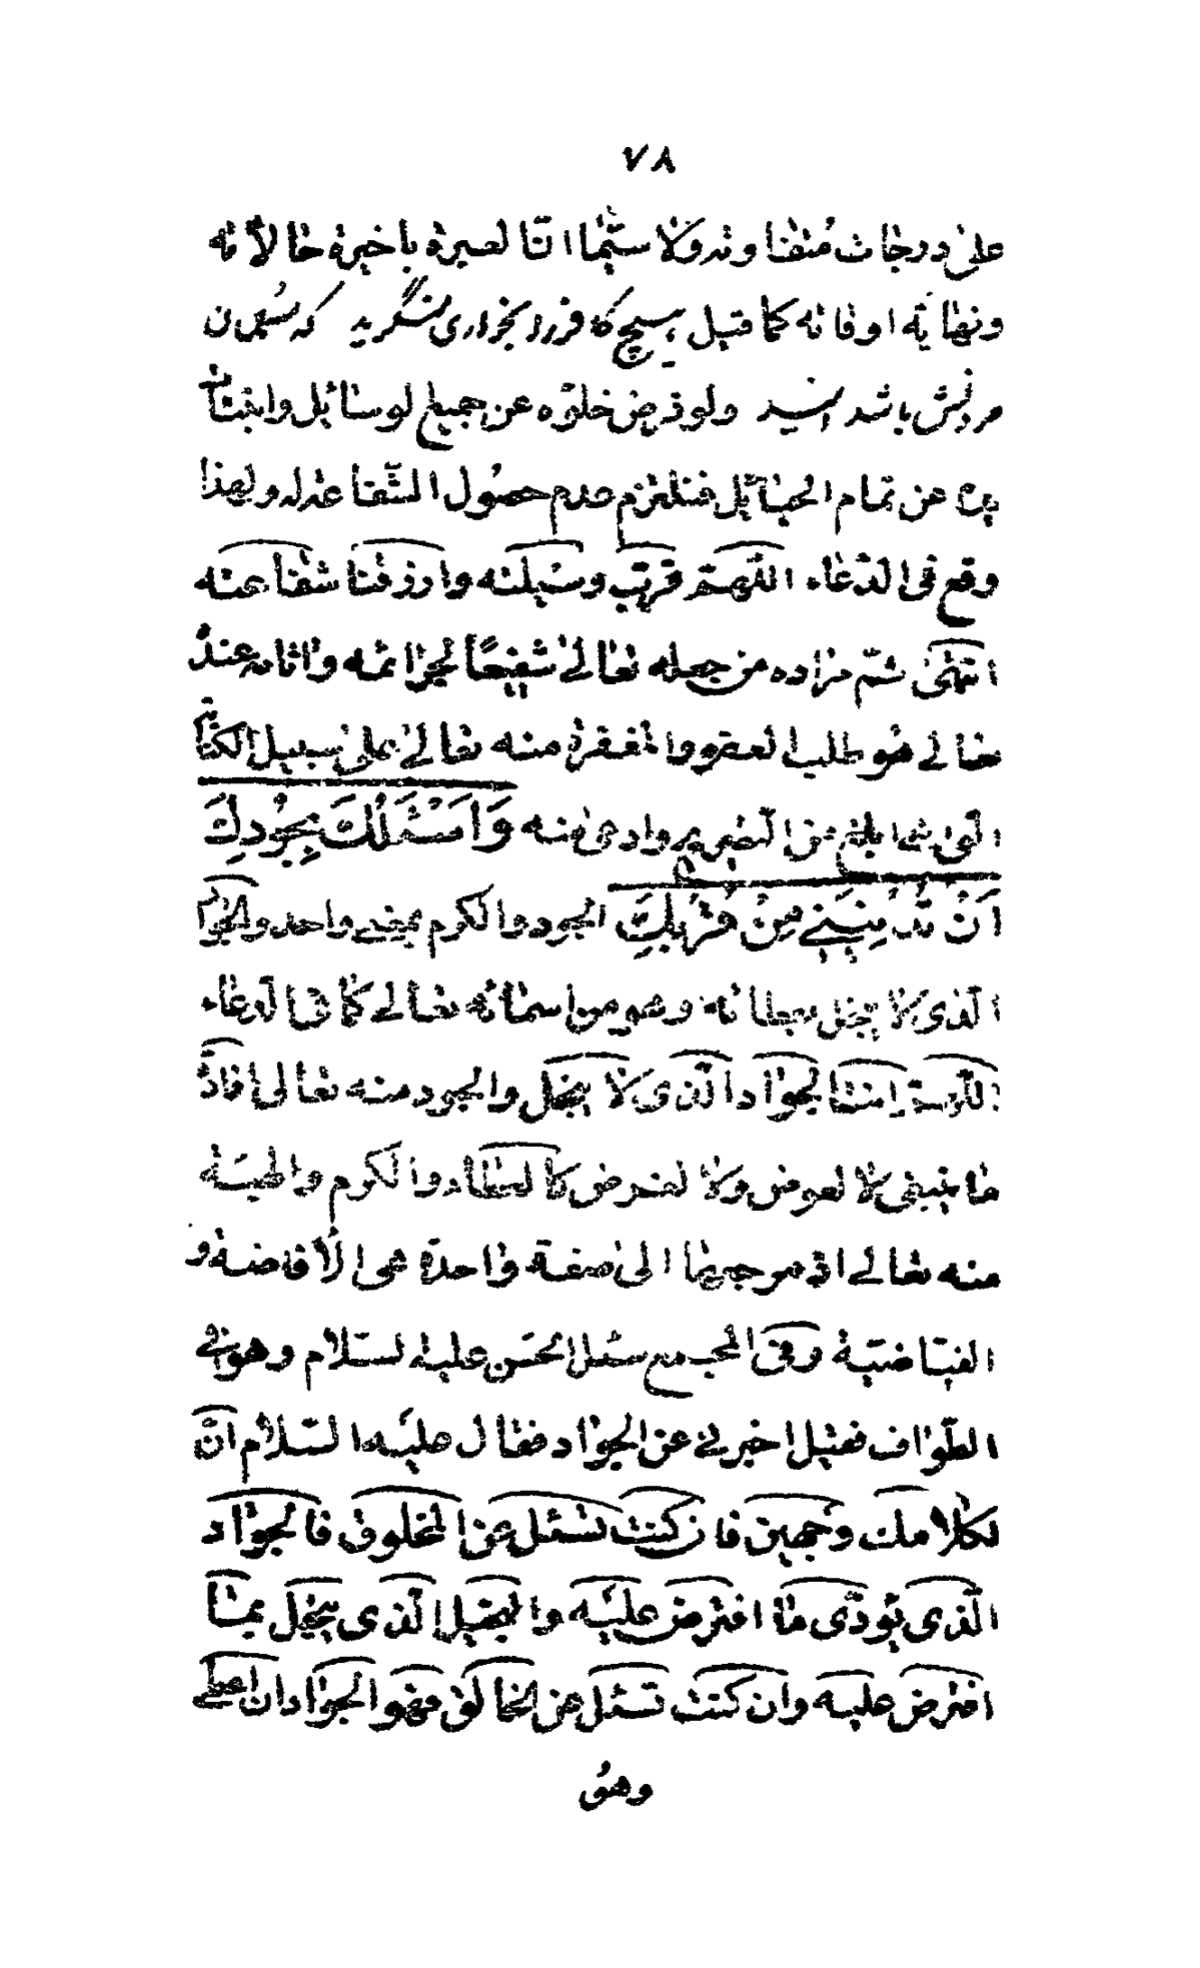 ٧٨
على درجات متفاوتة ولا سيّما انّ العبرة باخيرة حالاته
ونهاية اوقاته كما قيل هیچ کافر را بخواری منگرید که مسلمان
مردنش باشد امید ولو فرض خلوّه عن جميع الوسائل وانبتات
يده عن تمام الحبائل فنلتزم عدم حصول الشّفاعة له ولهذا
وقع فى الدّعاء اللّهمّ قرّب وسيلته وارزقنا شفاعته
انتهى ثمّ مراده من جعله تعالى شفيعًا لجرائمه واثامه عنده
تعالى هو طلب العفو والمغفرة منه تعالى على سبيل الكناية
الّتى هى ابلغ من التّصريح وادعى منه وَاَسْئَلُكَ بِجُودِكَ
اَنْ تُدْنِيَنِي مِنْ قُرْبِكَ الجود والكرم بمعنى واحد والجواد
الّذى لا يبخل بعطائه وهو من اسمائه تعالى كما فى الدعاء
اللّهمّ انت الجواد الّذى لا يبخل والجود منه تعالى افادة
ما ينبغى لا لعوض ولا لغرض كالعطاء والكرم والهبة
منه تعالى اذ مرجعها الى صفة واحدة هى الافاضة و
الفيّاضيّة وفى المجمع سئل الحسن عليه السّلام وهو فى
الطّواف فقيل اخبرنى عن الجواد فقال عليه السّلام انّ
لكلامك وجهين فان كنت تسئل عن المخلوق فالجواد
الّذى يؤدّى ما افترض عليه والبخيل الّذى يبخل بما
افترض عليه وان كنت تسئل عن الخالق فهو الجواد ان اعطى
وهو